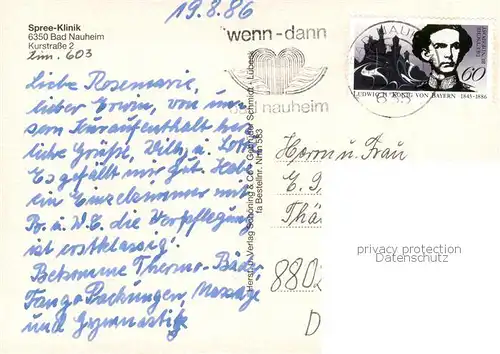 19.8.86
Spree-Klinik
6350 Bad Nauheim
Kurstraße 2
Zim. 603
Liebe Rosemarie,
lieber Erwin, von un-
sern Kuraufenthalt herz
liche Grüße, Wilh. u. Lotte
Es gefällt mir gut. Habe
ein Einzelzimmer mit
Du. u. W.C. die Verpflegung
ist erstklassig!
Bekomme Thermo-Bäder,
Fango Packungen, Massage
und Gymnastik
Herst. u. Verlag Schöning & Co + Gebrüder Schmidt - Lübeck
fa Bestellnr. Nhm 583
wenn-dann
bad nauheim
DEUTSCHE BUNDESPOST
60
LUDWIG II. KÖNIG VON BAYERN 1845-1886
Herrn u. Frau
E.
Thä
880
D
privacy protection
Datenschutz